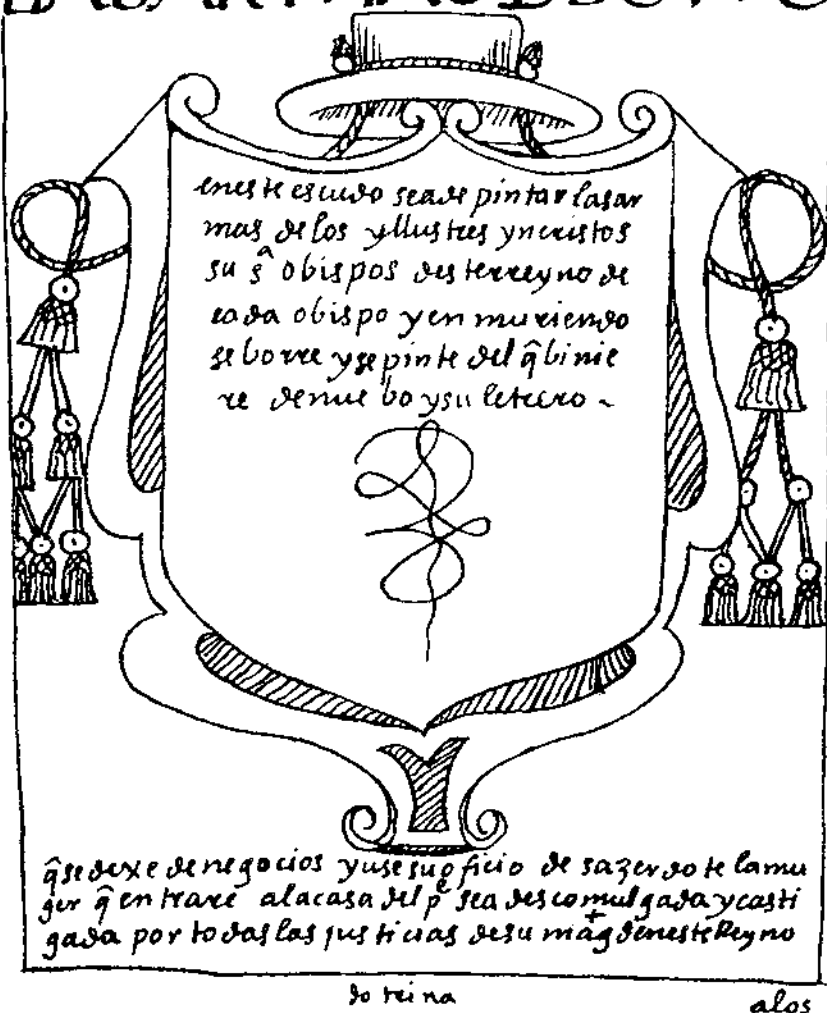 eneste escudo seade pintar lasar
mas de los yllustres yncristos
su sª obispos desterreyno de
cada obispo y en muriendo
se borre y se pinte del q̃ binie
re denuebo y su letrero ~
q̃ se dexe de negocios y use su oficio de sazerdote la mu
ger q̃ entrare a la casa del pᵉ sea descomulgada y casti
gada por todas las justicias de su mag⁺ deneste Reyno
dotrina
alos